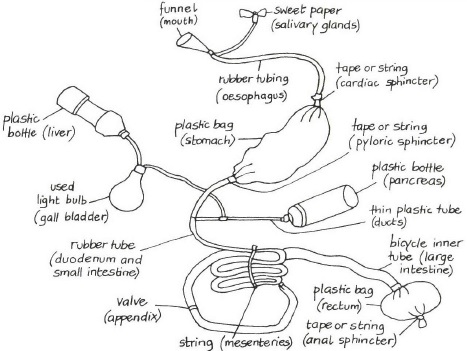 funnel
(mouth)
sweet paper
(salivary glands)
rubber tubing
(oesophagus)
tape or string
(cardiac sphincter)
plastic
bottle (liver)
plastic bag
(stomach)
tape or string
(pyloric sphincter)
plastic bottle
(pancreas)
used
light bulb
(gall bladder)
thin plastic tube
(ducts)
rubber tube
(duodenum and
small intestine)
bicycle inner
tube (large
intestine)
valve
(appendix)
plastic bag
(rectum)
string (mesenteries)
tape or string
(anal sphincter)